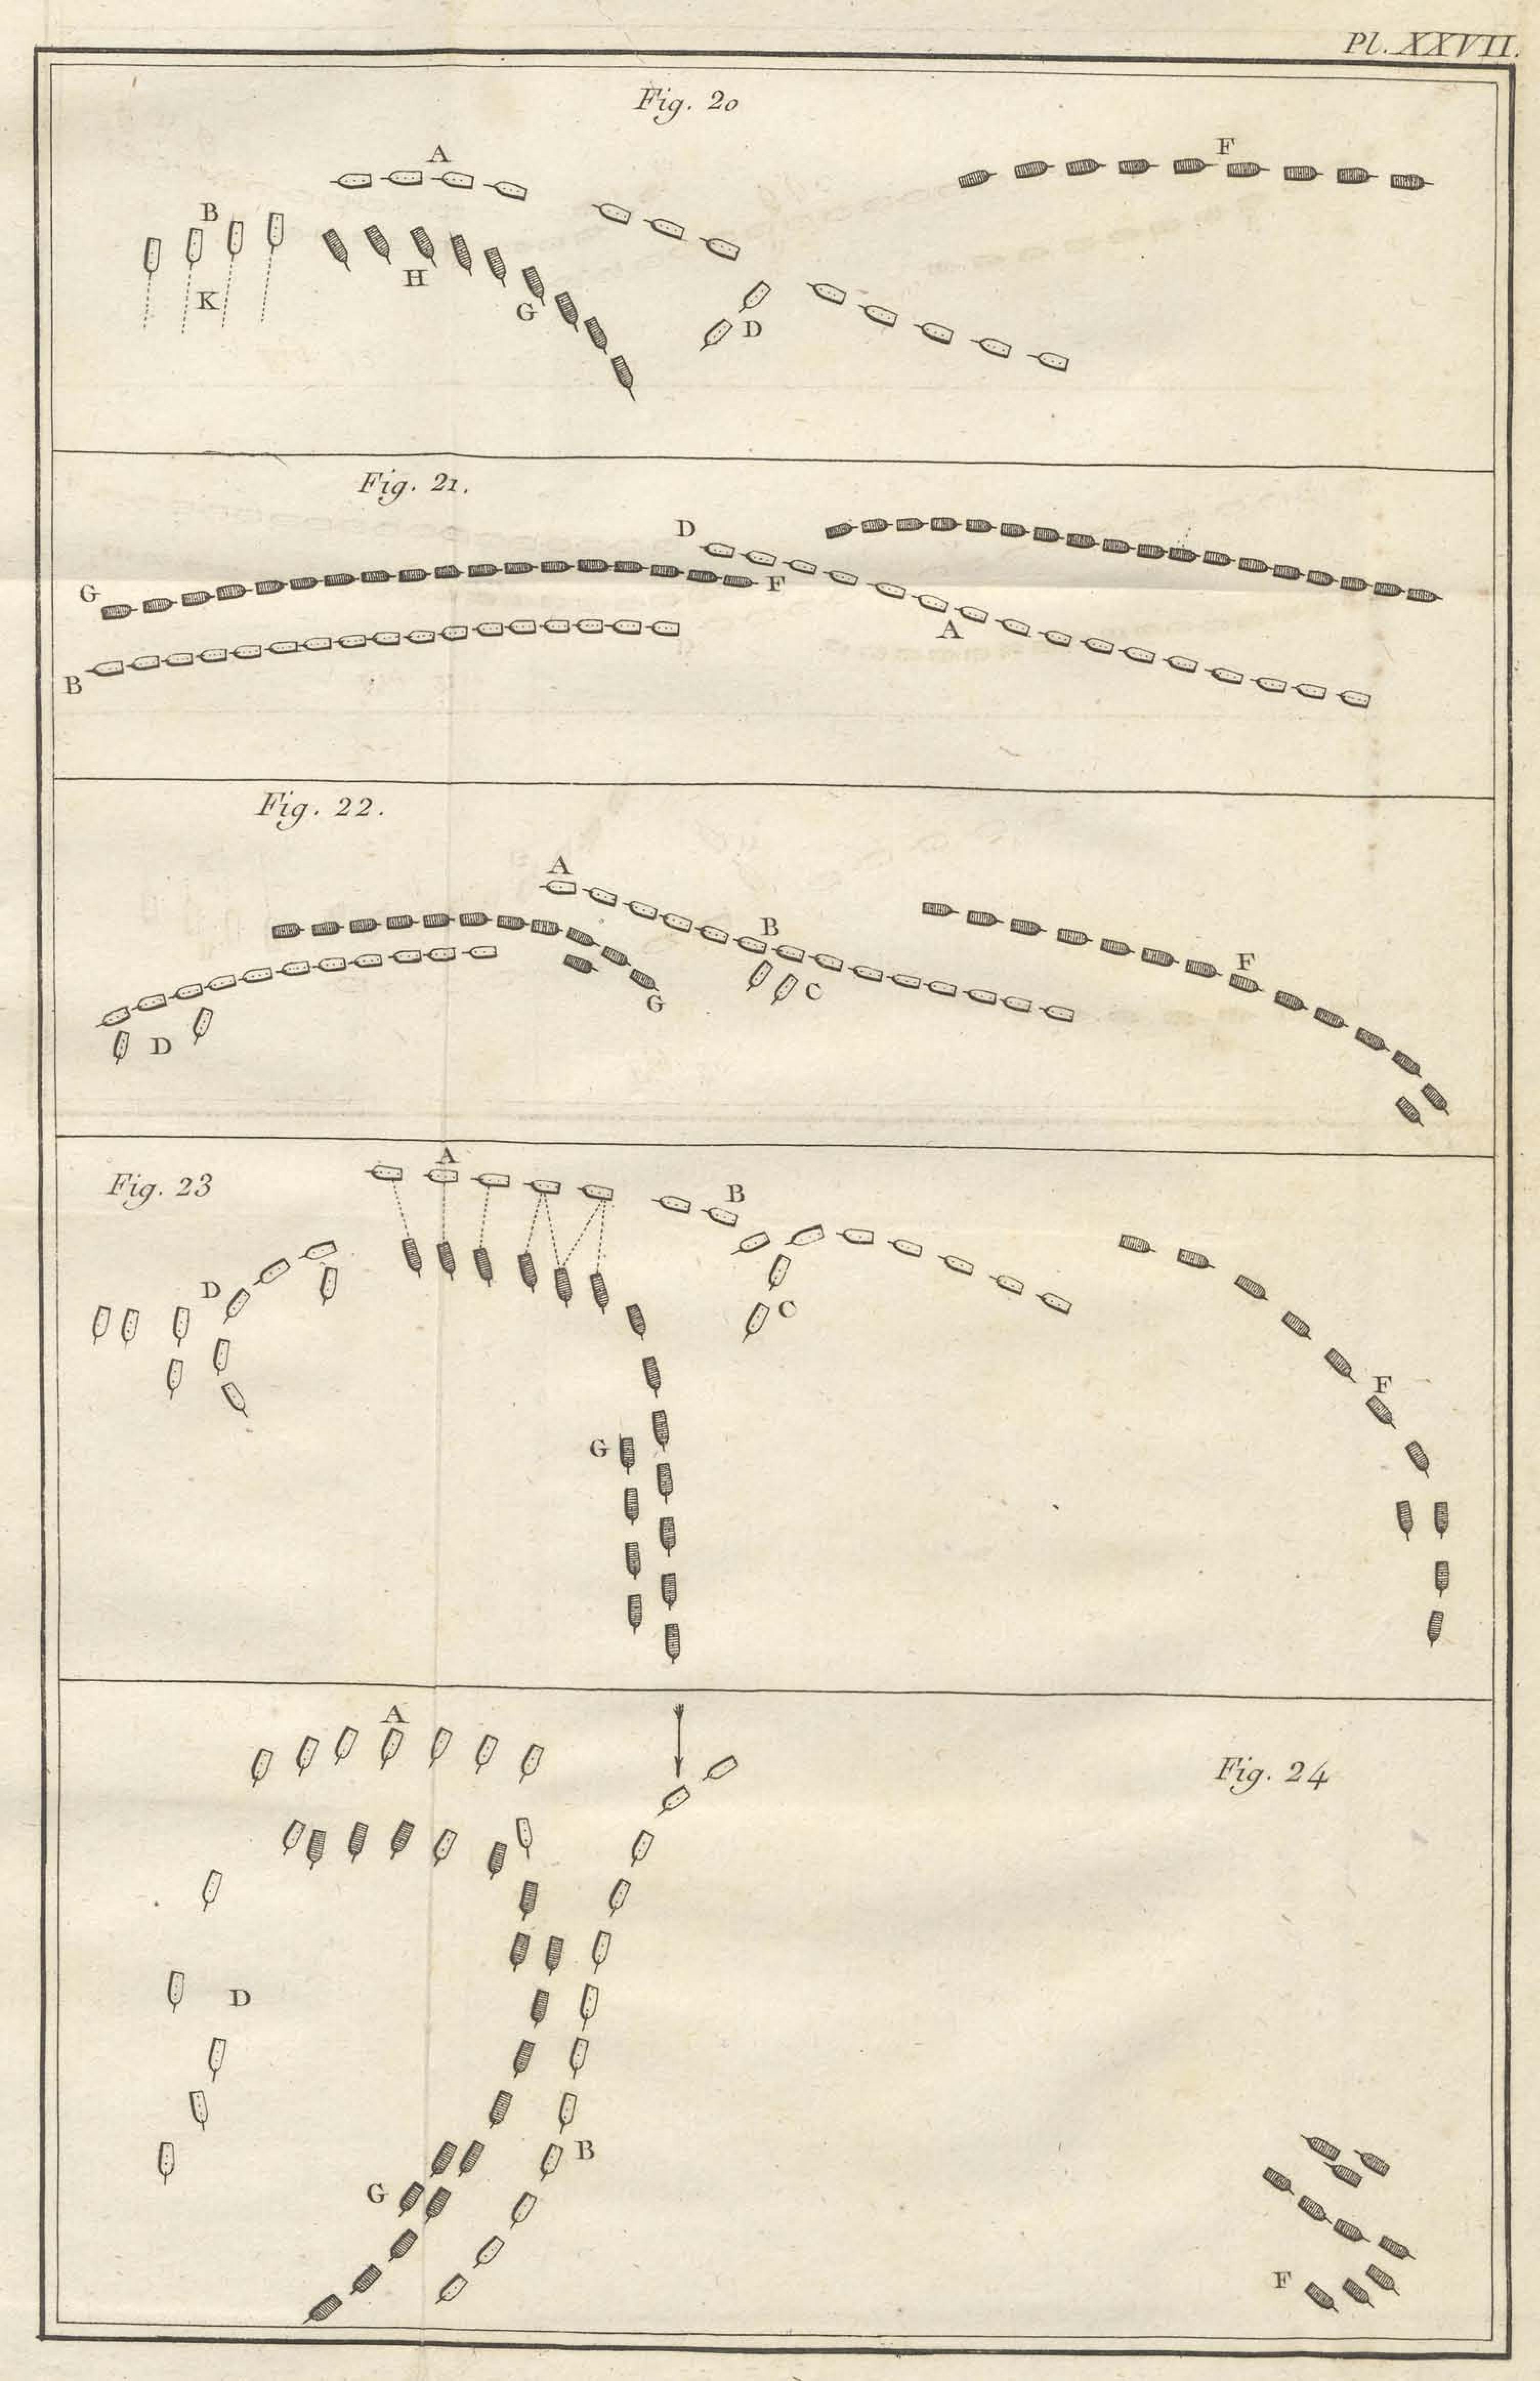 Pl. XXVII.
Fig. 20
A
F
B
H
K
G
D
Fig. 21.
D
G
F
A
B
Fig. 22.
A
B
F
C
G
D
A
Fig. 23
B
D
C
F
G
A
Fig. 24
D
B
G
F